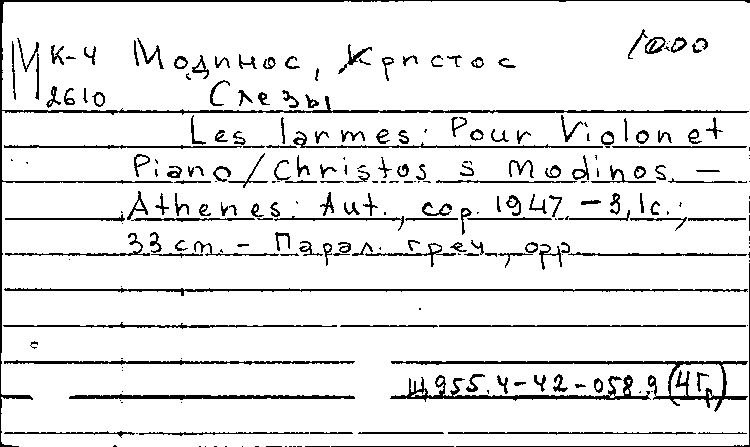 М К-4 Модинос, Христос 1000
2610 Слезы
Les larmes: Pour Violon et
Piano / Christos S Modinos. —
Athenes: Aut., cop. 1947. — 3, 1 с.;
33 cm. — Парал. греч., фр
Щ955.4-42-058.9 (4Гр)